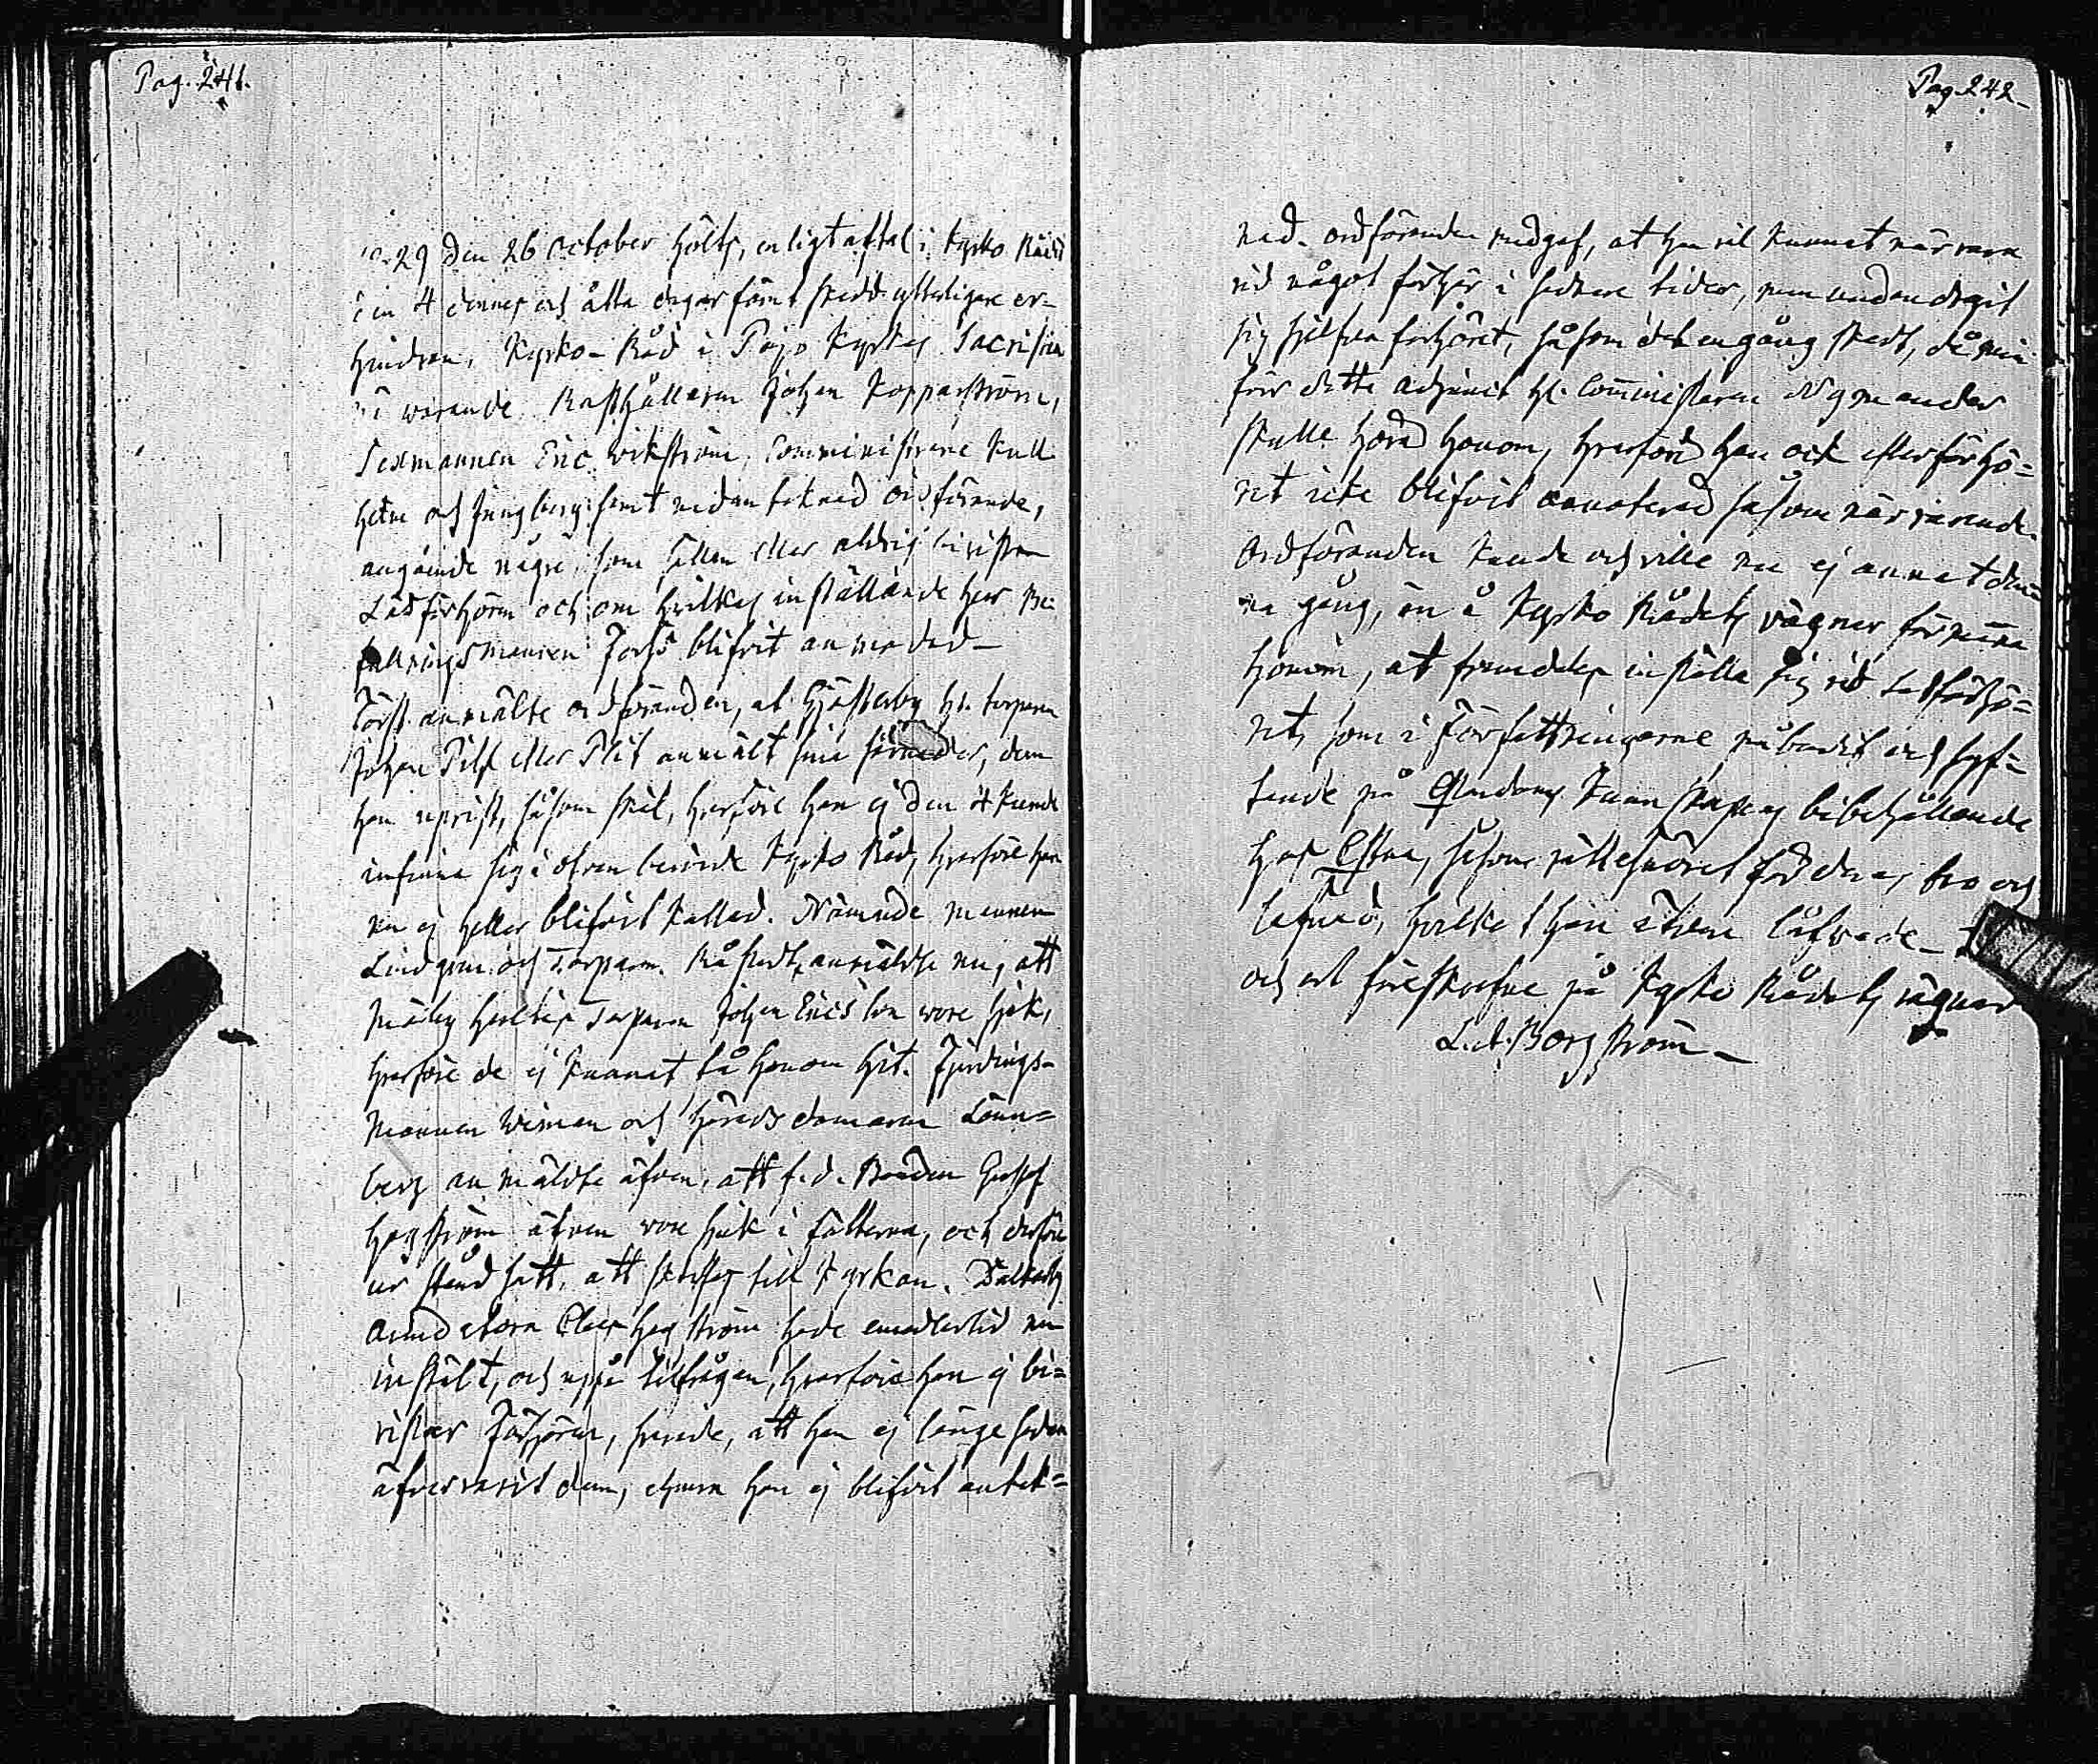 Pag. 241.
1829 den 26 October hölts, enligt aftal i Kyrko Rådet
den 4 dennes och åtta dagar förut skedd ytterligare er-
hindran, Kyrko-Råd i Pojo Kyrkas Sacristia
när warande Rusthållaren Johan Kopparström,
Sexmannen Eric Wikström, Comministrarne Kull-
helm och Ljungberg samt undertecknad ordförande,
angående några, som sällan eller aldrig bivistra
Läsförhören och om hvilkas inställande här Be-
fallningsmannen Forss blifvit anmodad_
Först anmälte ordföranden, at Gjästerby hs. torparen
Johan Pilf eller Plit anmält sina skäl, dem
han uprist, såsom skäl, hvarföre han ej den 4 kunde
infinna sig i ofvan berörde Kyrko Råd, hvarföre han
nu ej heller blifvit kallad. Nämnde mannen
Lindgren och Torparn anmäldte nu, att
Torparen Johan Ericsson wore sjuk,
hvarföre de ej kunnat få honom hit. Fjerdings-
mannen Wiman och Häradsdomaren Lönn-
berg anmäldte äfven, att f.d. Bonden Gustaf
Hagström äfven vore sjuk i fötterna, och derföre
ur stånd satt, att skaffas till Kyrkan. Dalkarby
Claes Hagström hade emedlertid nu
instält, och uppå tilfrågan, hvarföre han ej bi-
vistar Förhören, svarade, att han ej länge sedan
öfvervarit dem, ehuru han ej blifvit antek-
Pag. 242_
nad. Ordföranden medgaf, at han väl kunnat närvara
vid något förhör i sednare tider, men undandragit
sig sjelfva förhöret, såsom det en gång skedt, då min
för detta Adjunct hr Comministern Nymander
skulle höra honom, hvarföre han ock efter förhö-
ret icke blifvit annoterad såsom närvarande.
Ordföranden kunde och ville nu ej annat den-
na gång, än å Kyrko Rådets vägnar förmana
honom, at framdeles inställa sig vid Läsförhö-
ret, som i Författningarne påbudit och syf-
tande på Gudoms Kunskapens bibehållande
hos Ester, såsom rättesnöret för deras tro och
lefnad, hvilket han äfven låfvade_
och at föreskrefne på Kyrko Rådets vägnar
L.A. Borgström_